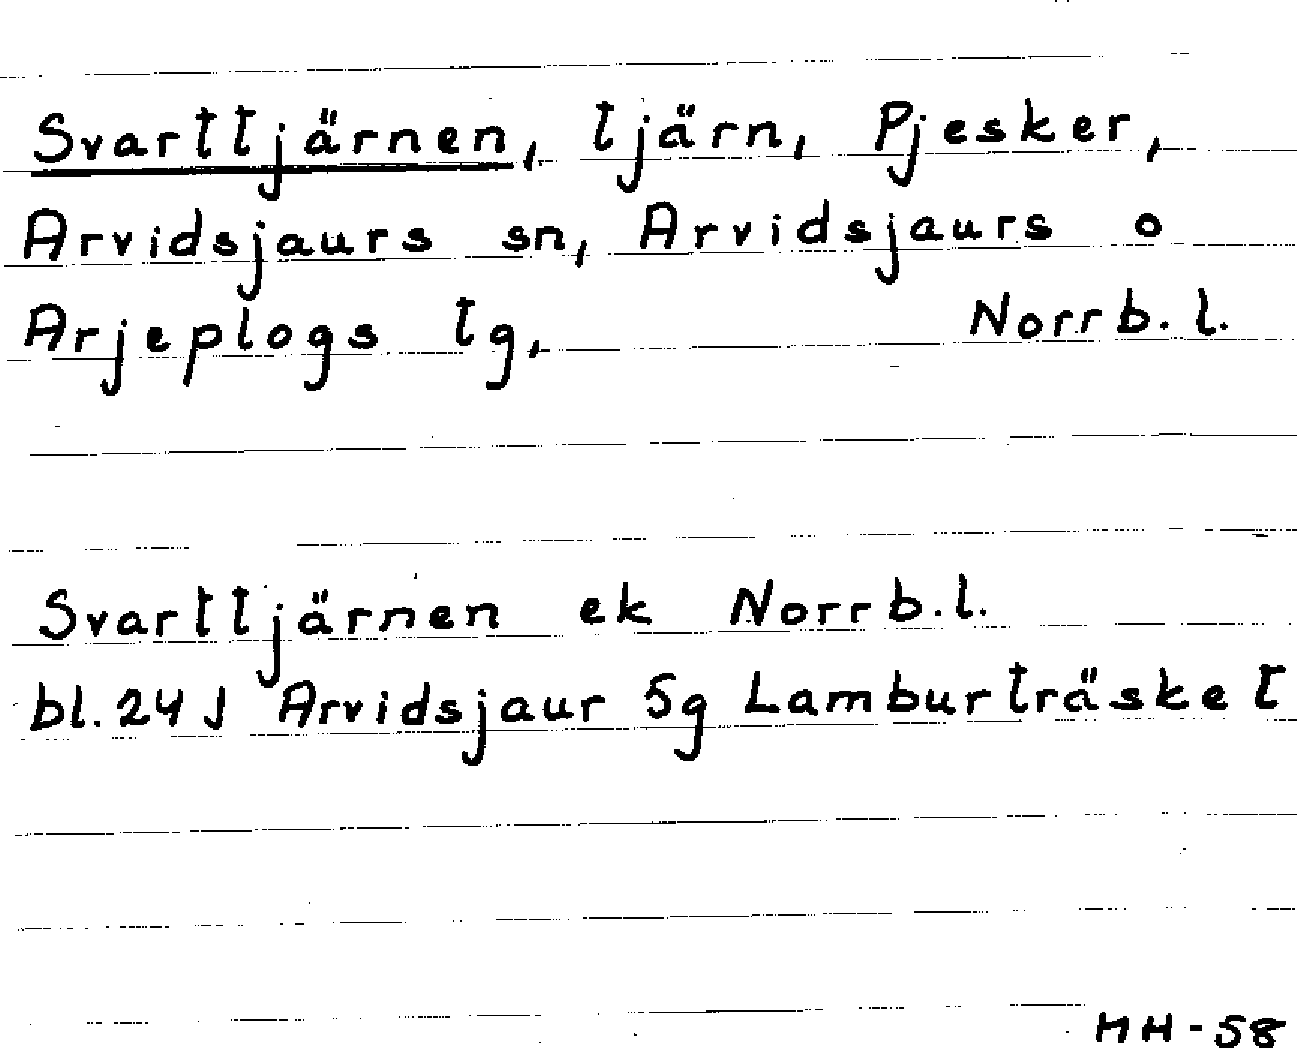 Svarttjärnen, tjärn, Pjesker,
Arvidsjaurs sn, Arvidsjaurs o
Arjeplogs tg, Norrb.l.
Svarttjärnen ek Norrb.l.
bl.24J Arvidsjaur 5g Lamburträsket
MH-58